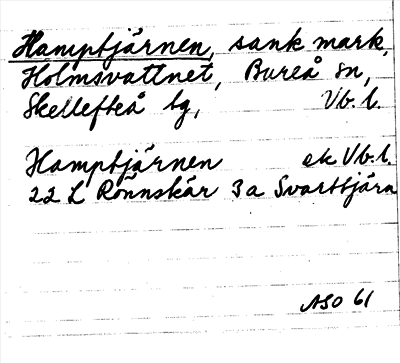 Hamptjärnen, sank mark,
Holmsvattnet, Bureå sn,
Skellefteå tg, Vb. l.
Hamptjärnen ek Vb. l.
22 L Rönnskär 3a Svarttjärn
ASO 61